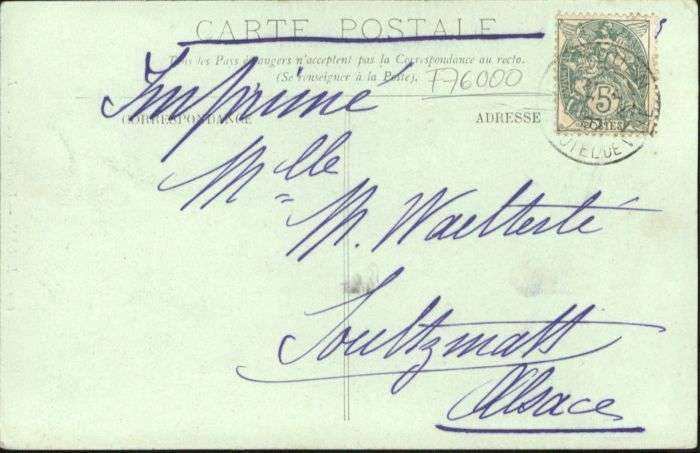 CARTE POSTALE
Tous les Pays étrangers n'acceptent pas la Correspondance au recto.
(Se renseigner à la Poste).
F76000
Imprimé
CORRESPONDANCE
ADRESSE
5c
POSTES
HOTEL DE V
Mlle
M. Waelterlé
Soultzmatt
Alsace